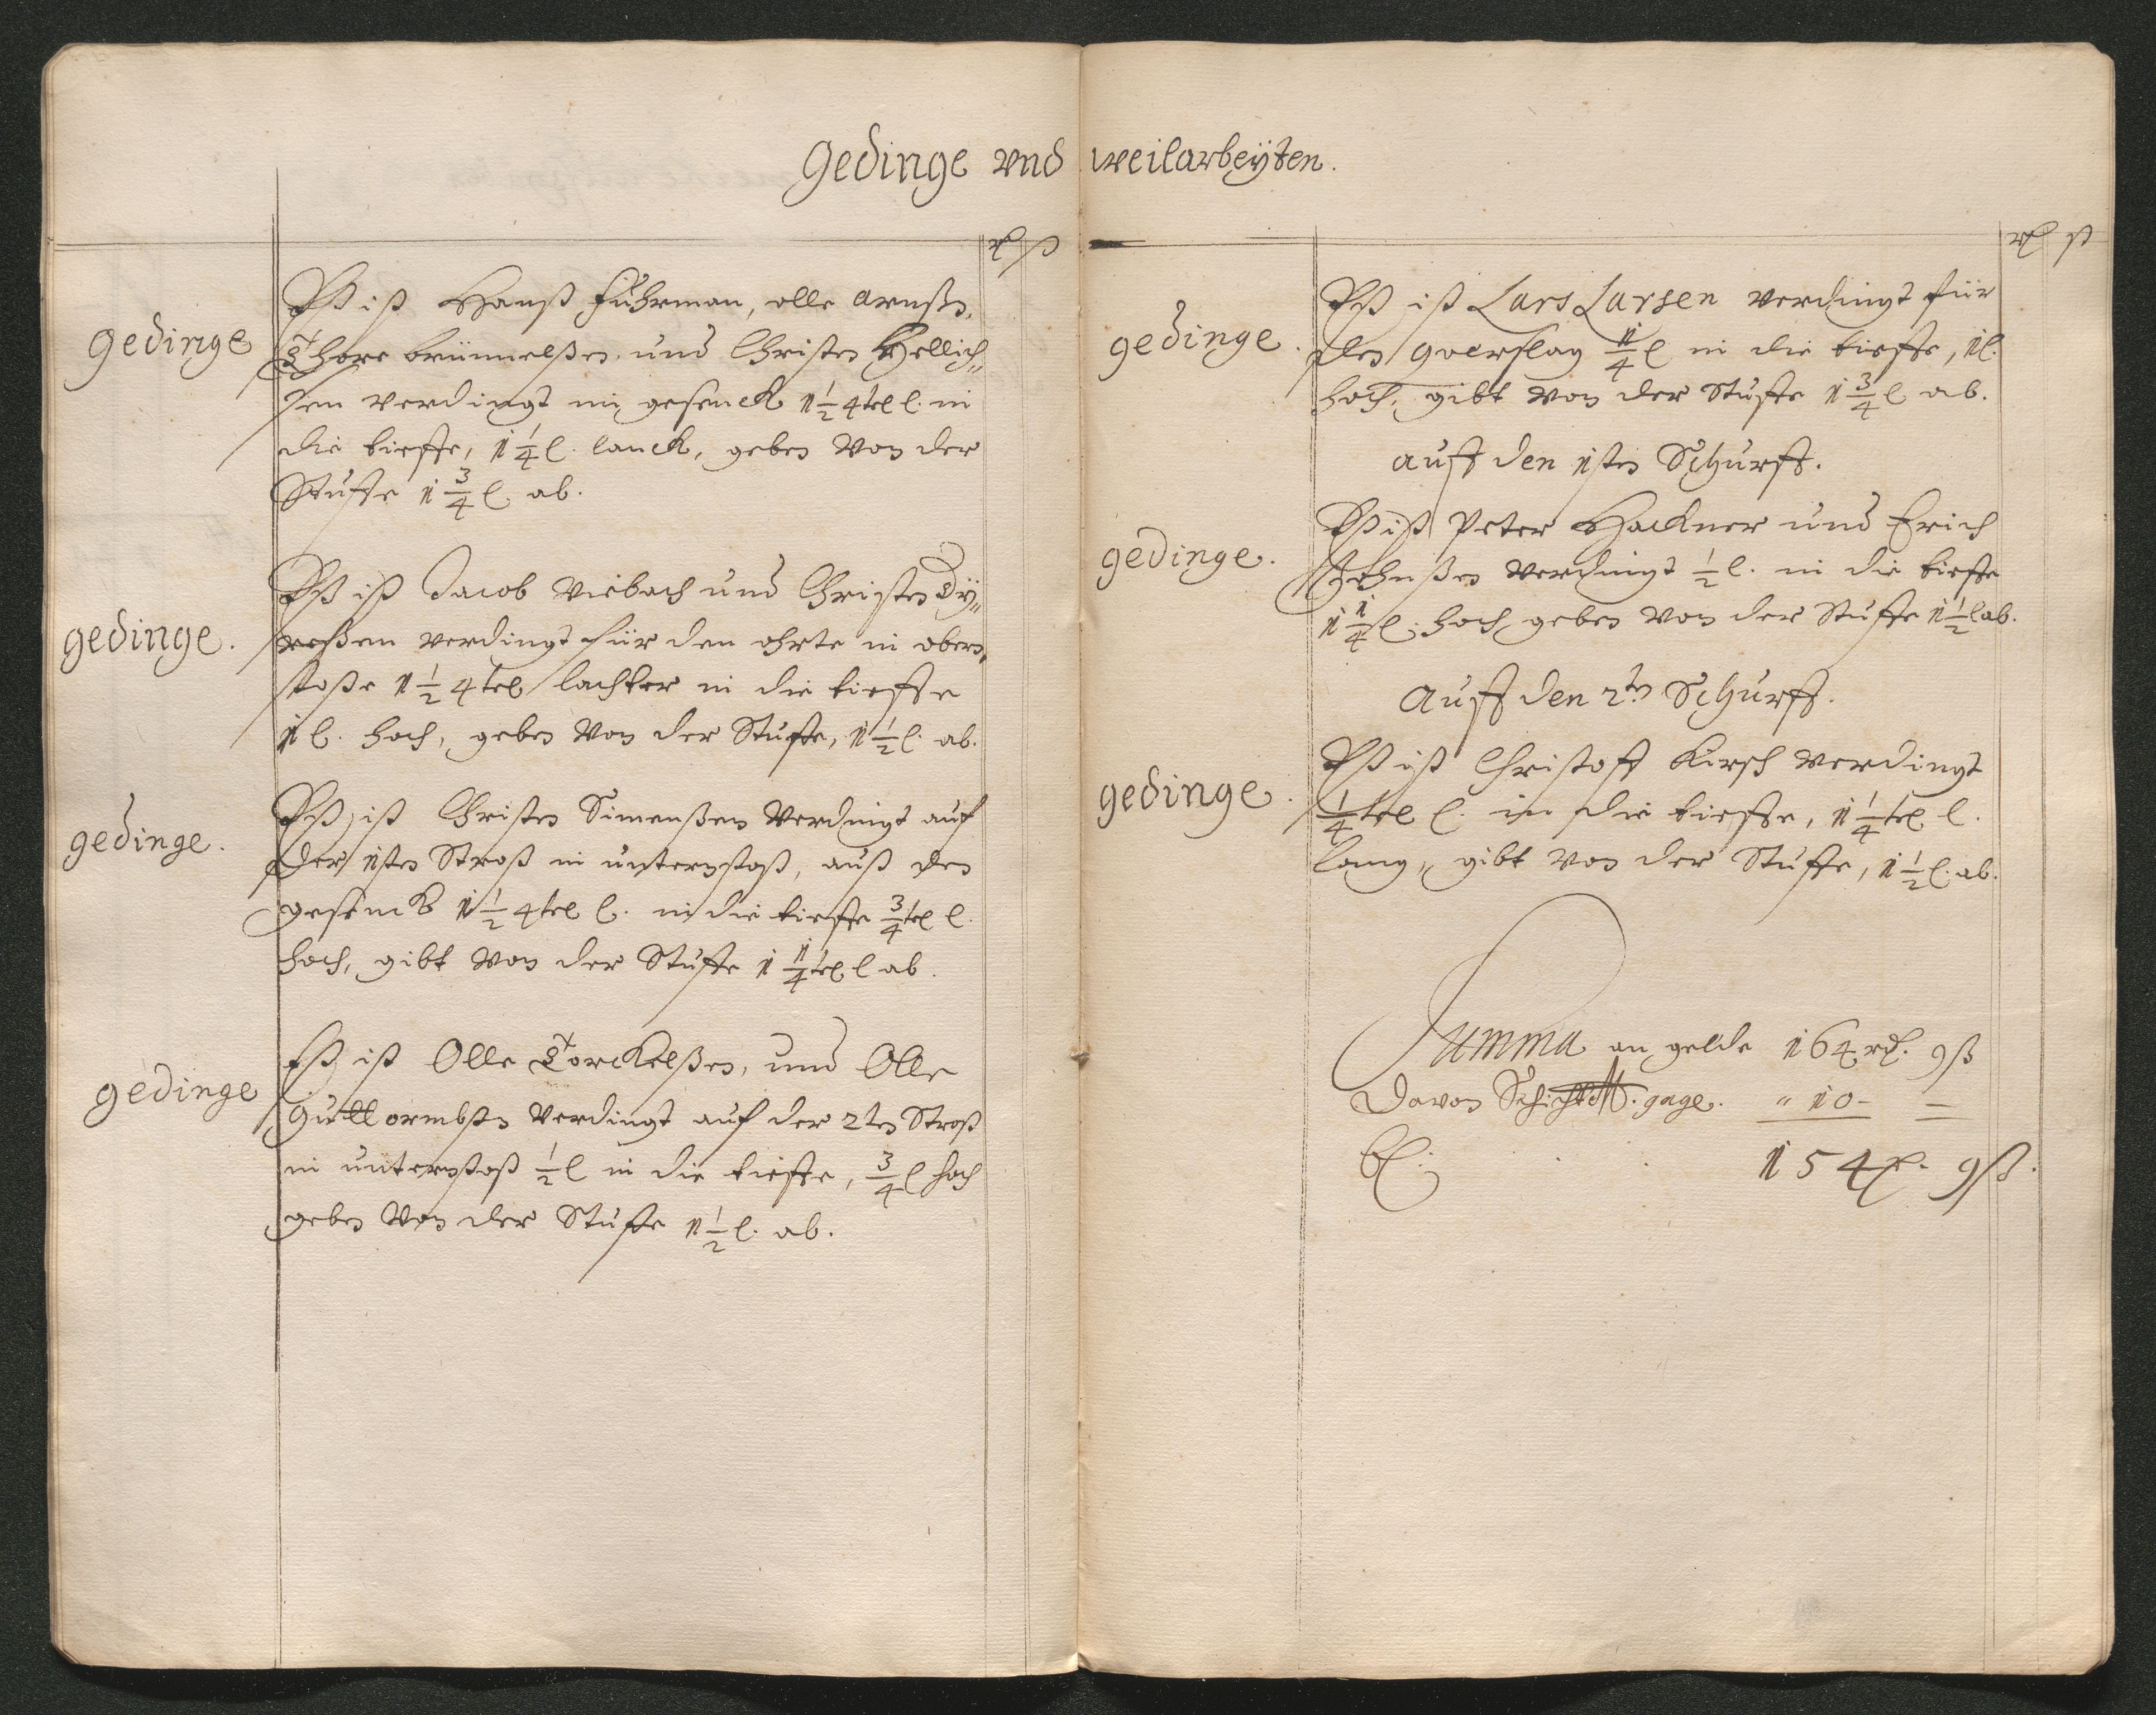 Gedinge vnd weilarbeÿten.
rd ß
gedinge
Eß ist Hanß fuhrman, olle arnßn,
Thore brünnelßen, und Christen Hellich„
sen verdingt im gesenck 1 1/2 4tel l. in
die tieffe, 1 1/4 l. lanck, geben von der
Stuffe 1 3/4 l. ab.
gedinge.
Eß ist Jacob Viebach und Christen Dÿ„
reßen verdingt für den ohrte in obern„
stoße 1 1/2 4tel lachter in die tieffe
1 l. hoch, geben von der Stuffe, 1 1/2 l. ab.
gedinge.
Eß ist Christen Simenßen verdingt auf
der 1sten Stroß in unternstoß, auß den
gesenck 1 1/2 4tel l. in die tieffe 3/4tel l.
hoch, gibt von der Stuffe 1 1/4tel l ab.
gedinge
Eß ist Olle Torckelßen, und Olle
Guttormbßn verdingt auf der 2ten Stroß
in unternstoß 1/2 l in die tieffe, 3/4 l hoch
geben von der Stuffe 1 1/2 l. ab.
rd ß
gedinge.
Eß ist Lars Larsen verdingt für
den querslag 1/4 l in die tieffe, 1 l.
hoch, gibt von der Stuffe 1 3/4 l ab.
auff den 1sten Schurff.
gedinge.
Eß ist Peter Hackner und Erich
Johnßen verdingt 1/2 l. in die tieffe
1 1/4 l. hoch geben von der Stuffe 1 1/2 l ab.
Auff den 2ten Schurff.
gedinge.
Eß ist Christoff Kirsch verdingt
1/4tel l. in die tieffe, 1 1/4tel l.
lang, gibt von der Stuffe, 1 1/2 l. ab.
Summa an gelde 164 rd. 9 ß
Davon Schicht M. gage. " 10 - =
bl: 154 rd. 9 ß.